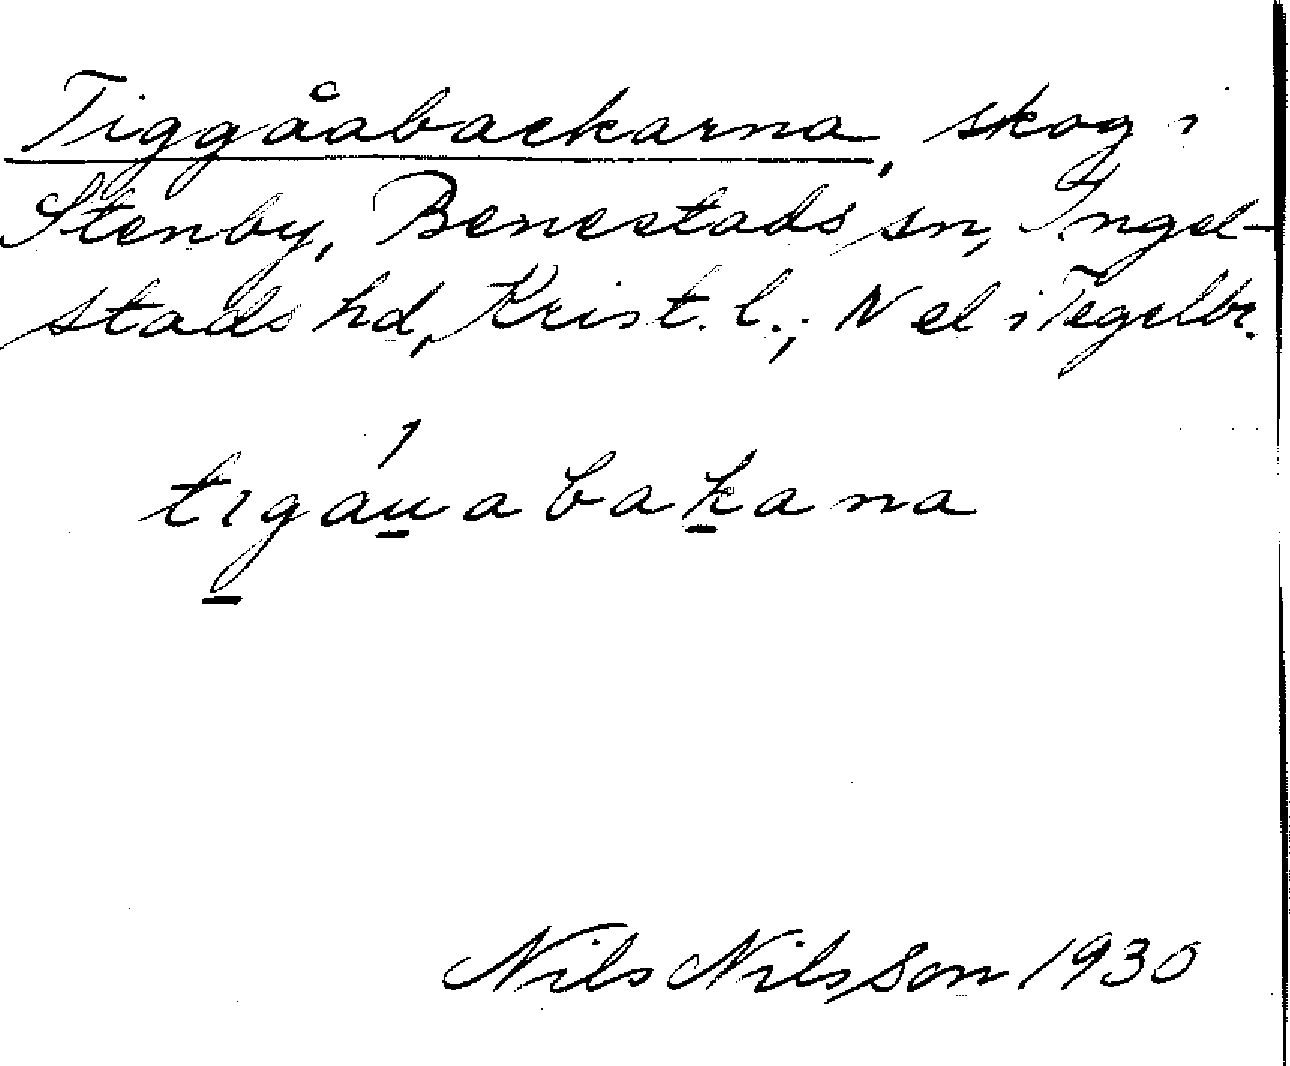 Tiggåabackarna, skog i
Stenby, Benestads sn, Ingel-
stads hd, Krist. l., N el i Tegelbr.
tigáuabakana
Nils Nilsson 1930